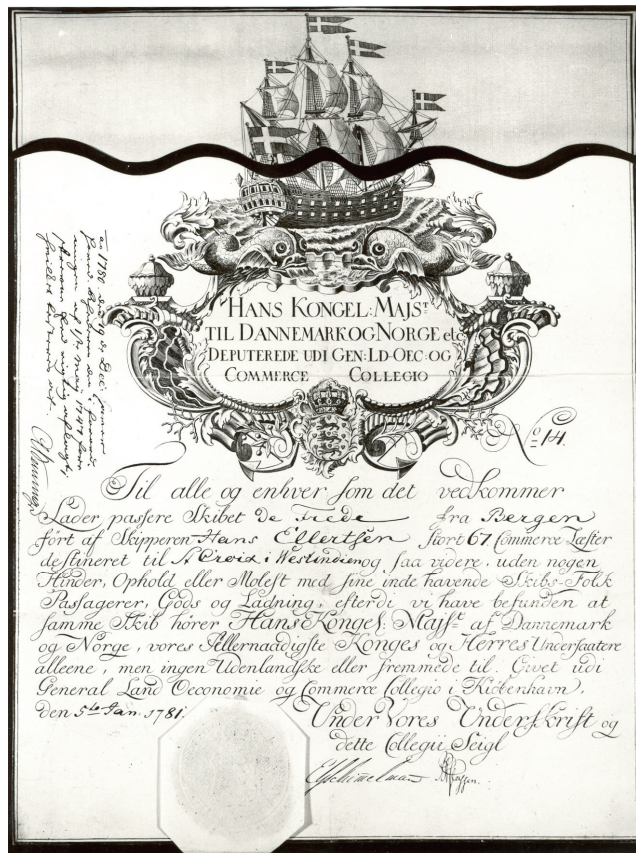 HANS KONGEL: MAJS.T
TIL DANNEMARK OG NORGE etc
DEPUTEREDE UDI GEN: LD-OEC: OG
COMMERCE COLLEGIO
No 14.
Til alle og enhver som det vedkommer
Lader passere Skibet De Frede fra Bergen
ført af Skipperen Hans Ellertsen stort 67 Commerce Læster
destineret til St Croix i Westindien og saa videre, uden nogen
Hinder, Ophold eller Molest med sine inde havende Skibs-Folk
Passagerer, Gods og Ladning, efterdi vi have befunden at
samme Skib hører Hans Kongel: Majst. af Dannemark
og Norge, vores Allernaadigste Konges og Herres Undersaatere
alleene, men ingen Udenlandske eller fremmede til. Givet udi
General Land Oeconomie og Commerce Collegio i Kiøbenhavn,
den 5te Jan. 1781.
Under Vores Underskrift og
dette Collegii Seigl